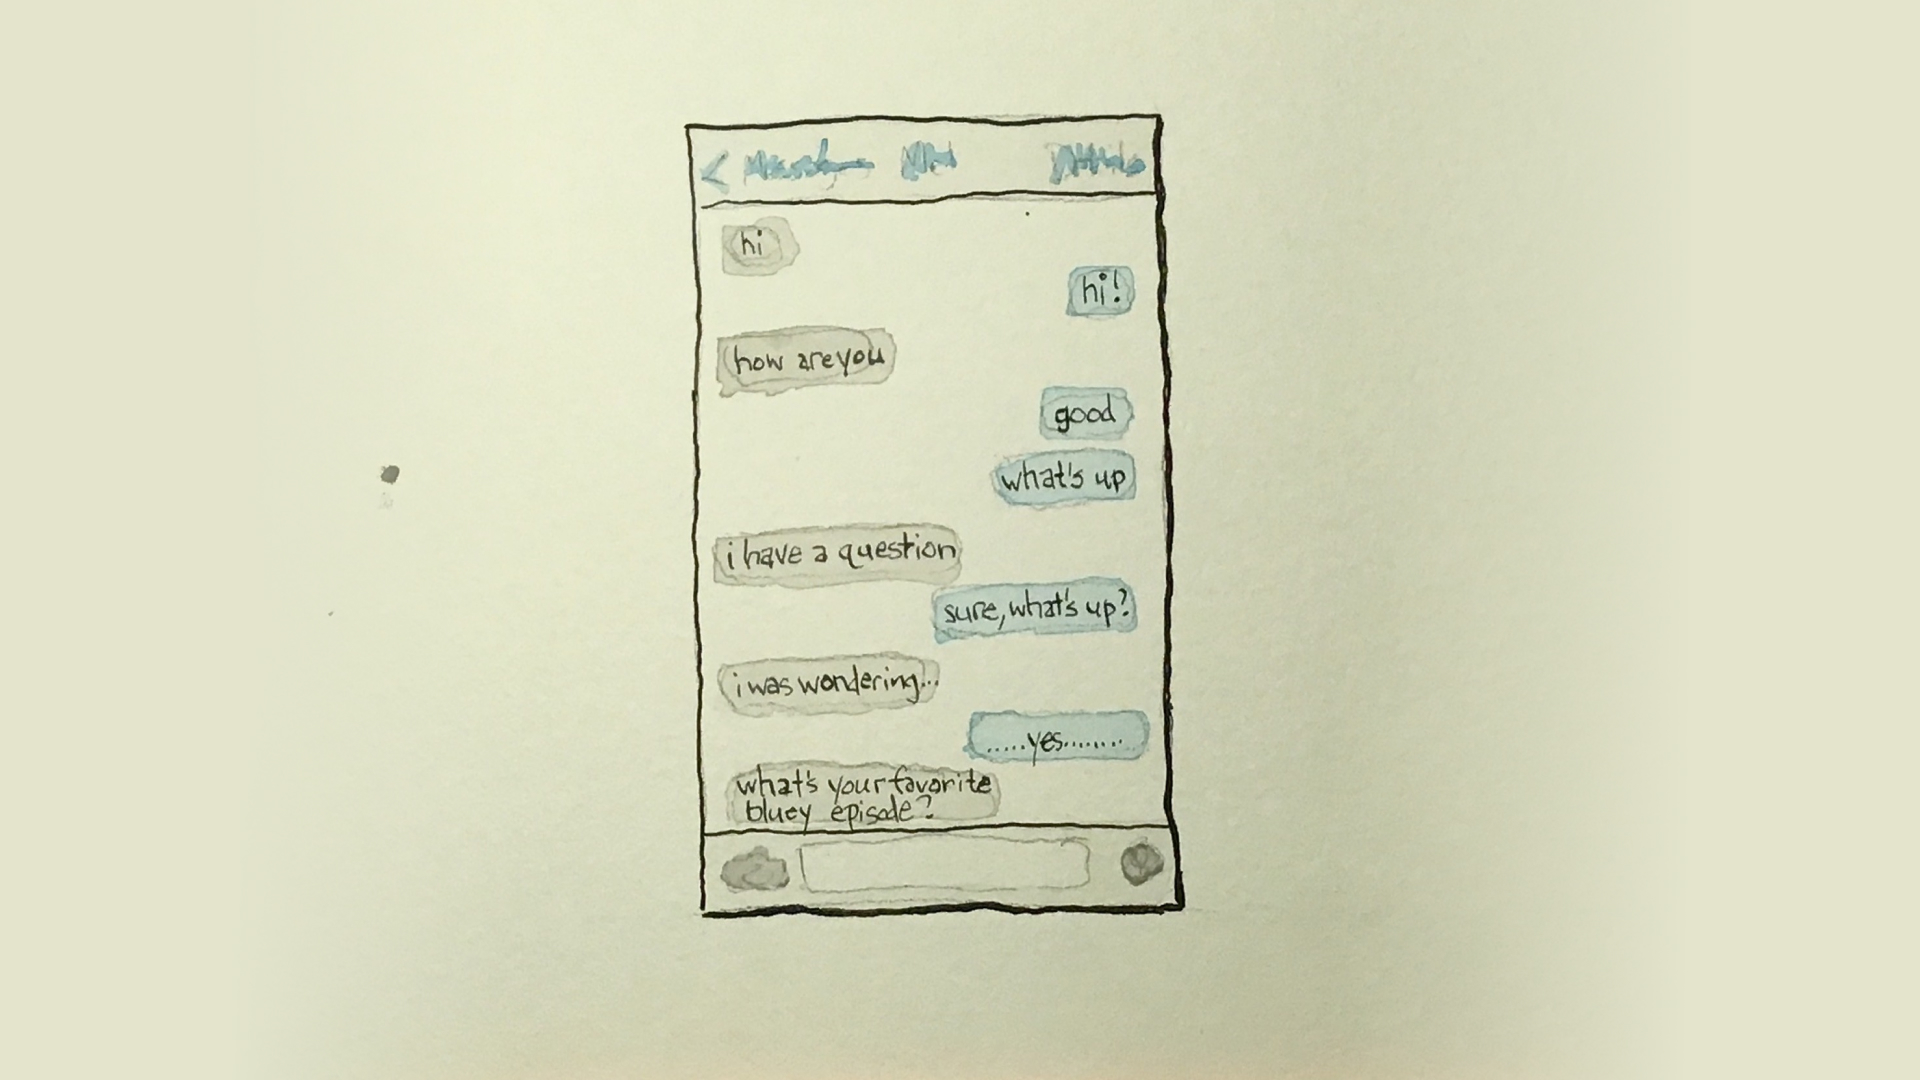 hi
hi!
how are you
good
what's up
i have a question
sure, what's up?
i was wondering...
.....yes........
what's your favorite
bluey episode?